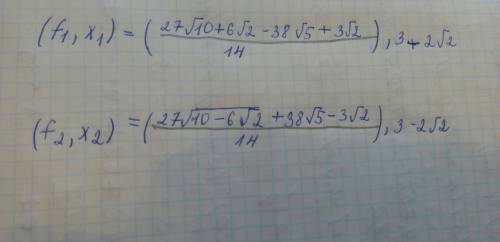 (f₁, x₁) = ((27√10+6√2 -38√5 + 3√2)/14), 3+2√2
(f₂, x₂) = ((27√(10-6√2) +38√5-3√2)/14), 3-2√2